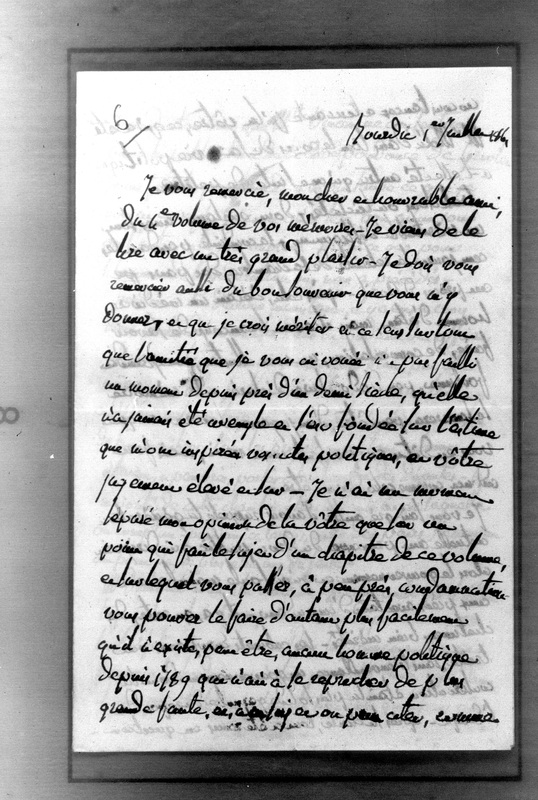 6
1er Juillet
Je vous remercie, mon cher et honorable ami,
du 4e volume de vos mémoires - Je viens de le
lire avec un très grand plaisir - Je dois vous
remercier aussi du bon souvenir que vous m'y
donnez, et que je crois mériter en ce sens surtout
que l'amitié que je vous ai vouée n'a pas failli
un moment depuis près d'un demi siècle, qu'elle
n'a jamais été aveugle et s'est fondée sur l'estime
que m'ont inspirée vos politiques, et vôtre
jugement élevé et sur - Je n'ai un moment
separé mon opinion de la vôtre que sur un
point qui fait le sujet d'un chapitre de ce volume,
et sur lequel vous passez, à peu près, condamnation
vous pouvez le faire d'autant plus facilement
qu'il n'existe, peut être, aucun homme politique
depuis 1789 qui n'ait à se reprocher de plus
grande faute, et on peut citer, comme